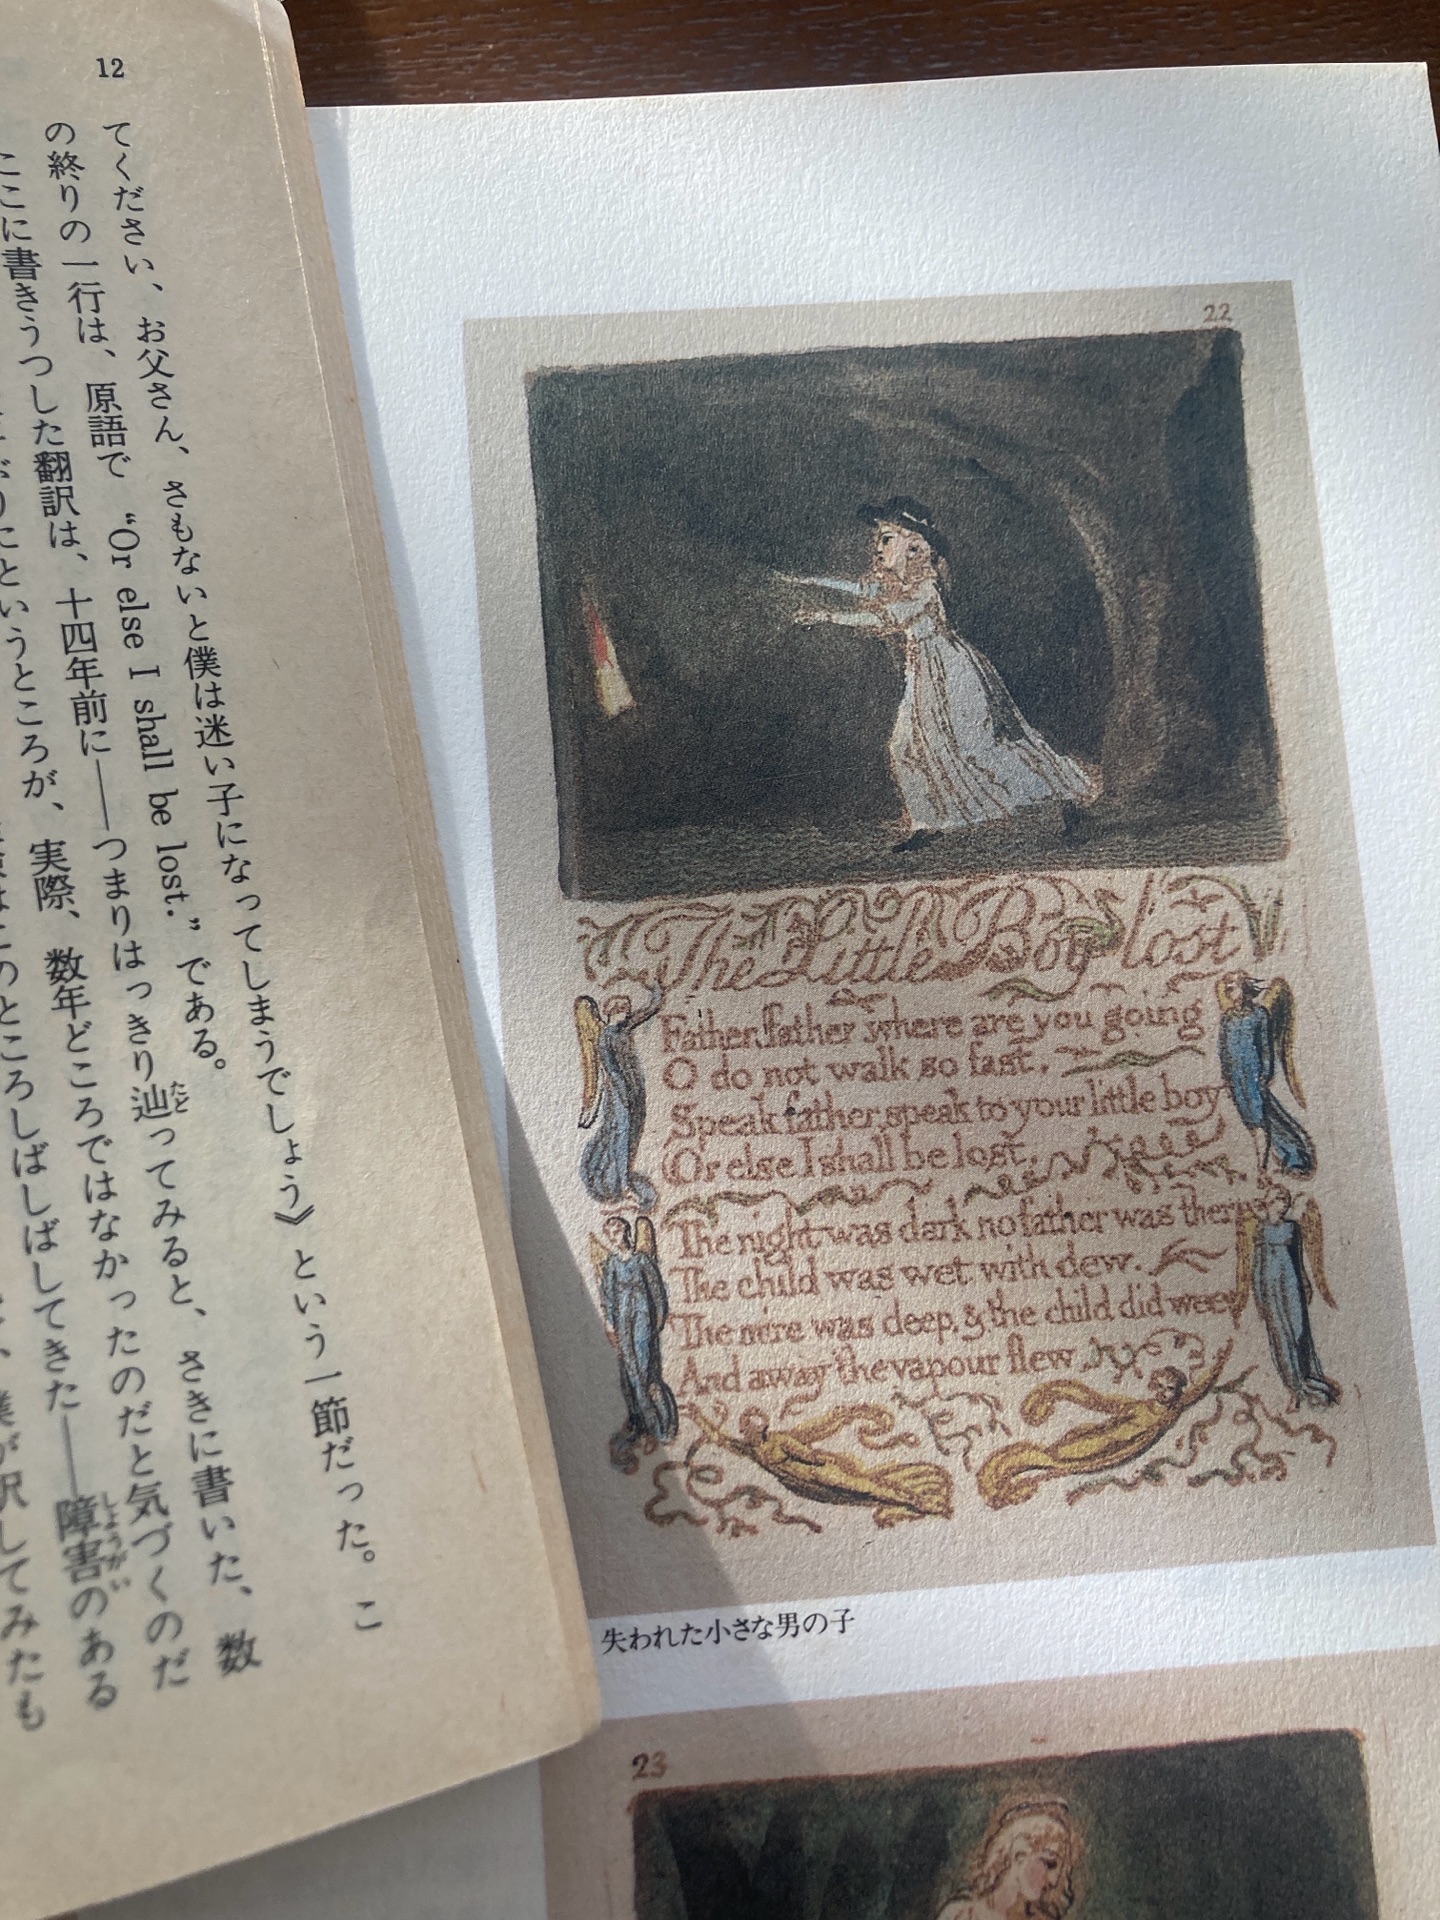 12
てください、お父さん、さもないと僕は迷い子になってしまうでしょう》という一節だった。こ
の終りの一行は、原語で “Or else I shall be lost.” である。
ここに書きうつした翻訳は、十四年前に——つまりはっきり辿ってみると、さきに書いた、数
ぶりにというところが、実際、数年どころではなかったのだと気づくのだ
このところしばしばしてきた——障害のある
僕が訳してみたも
22
The Little Boy lost
Father, father, where are you going
O do not walk so fast.
Speak father, speak to your little boy
Or else I shall be lost.
The night was dark no father was there
The child was wet with dew.
The mire was deep, & the child did weep
And away the vapour flew.
失われた小さな男の子
23